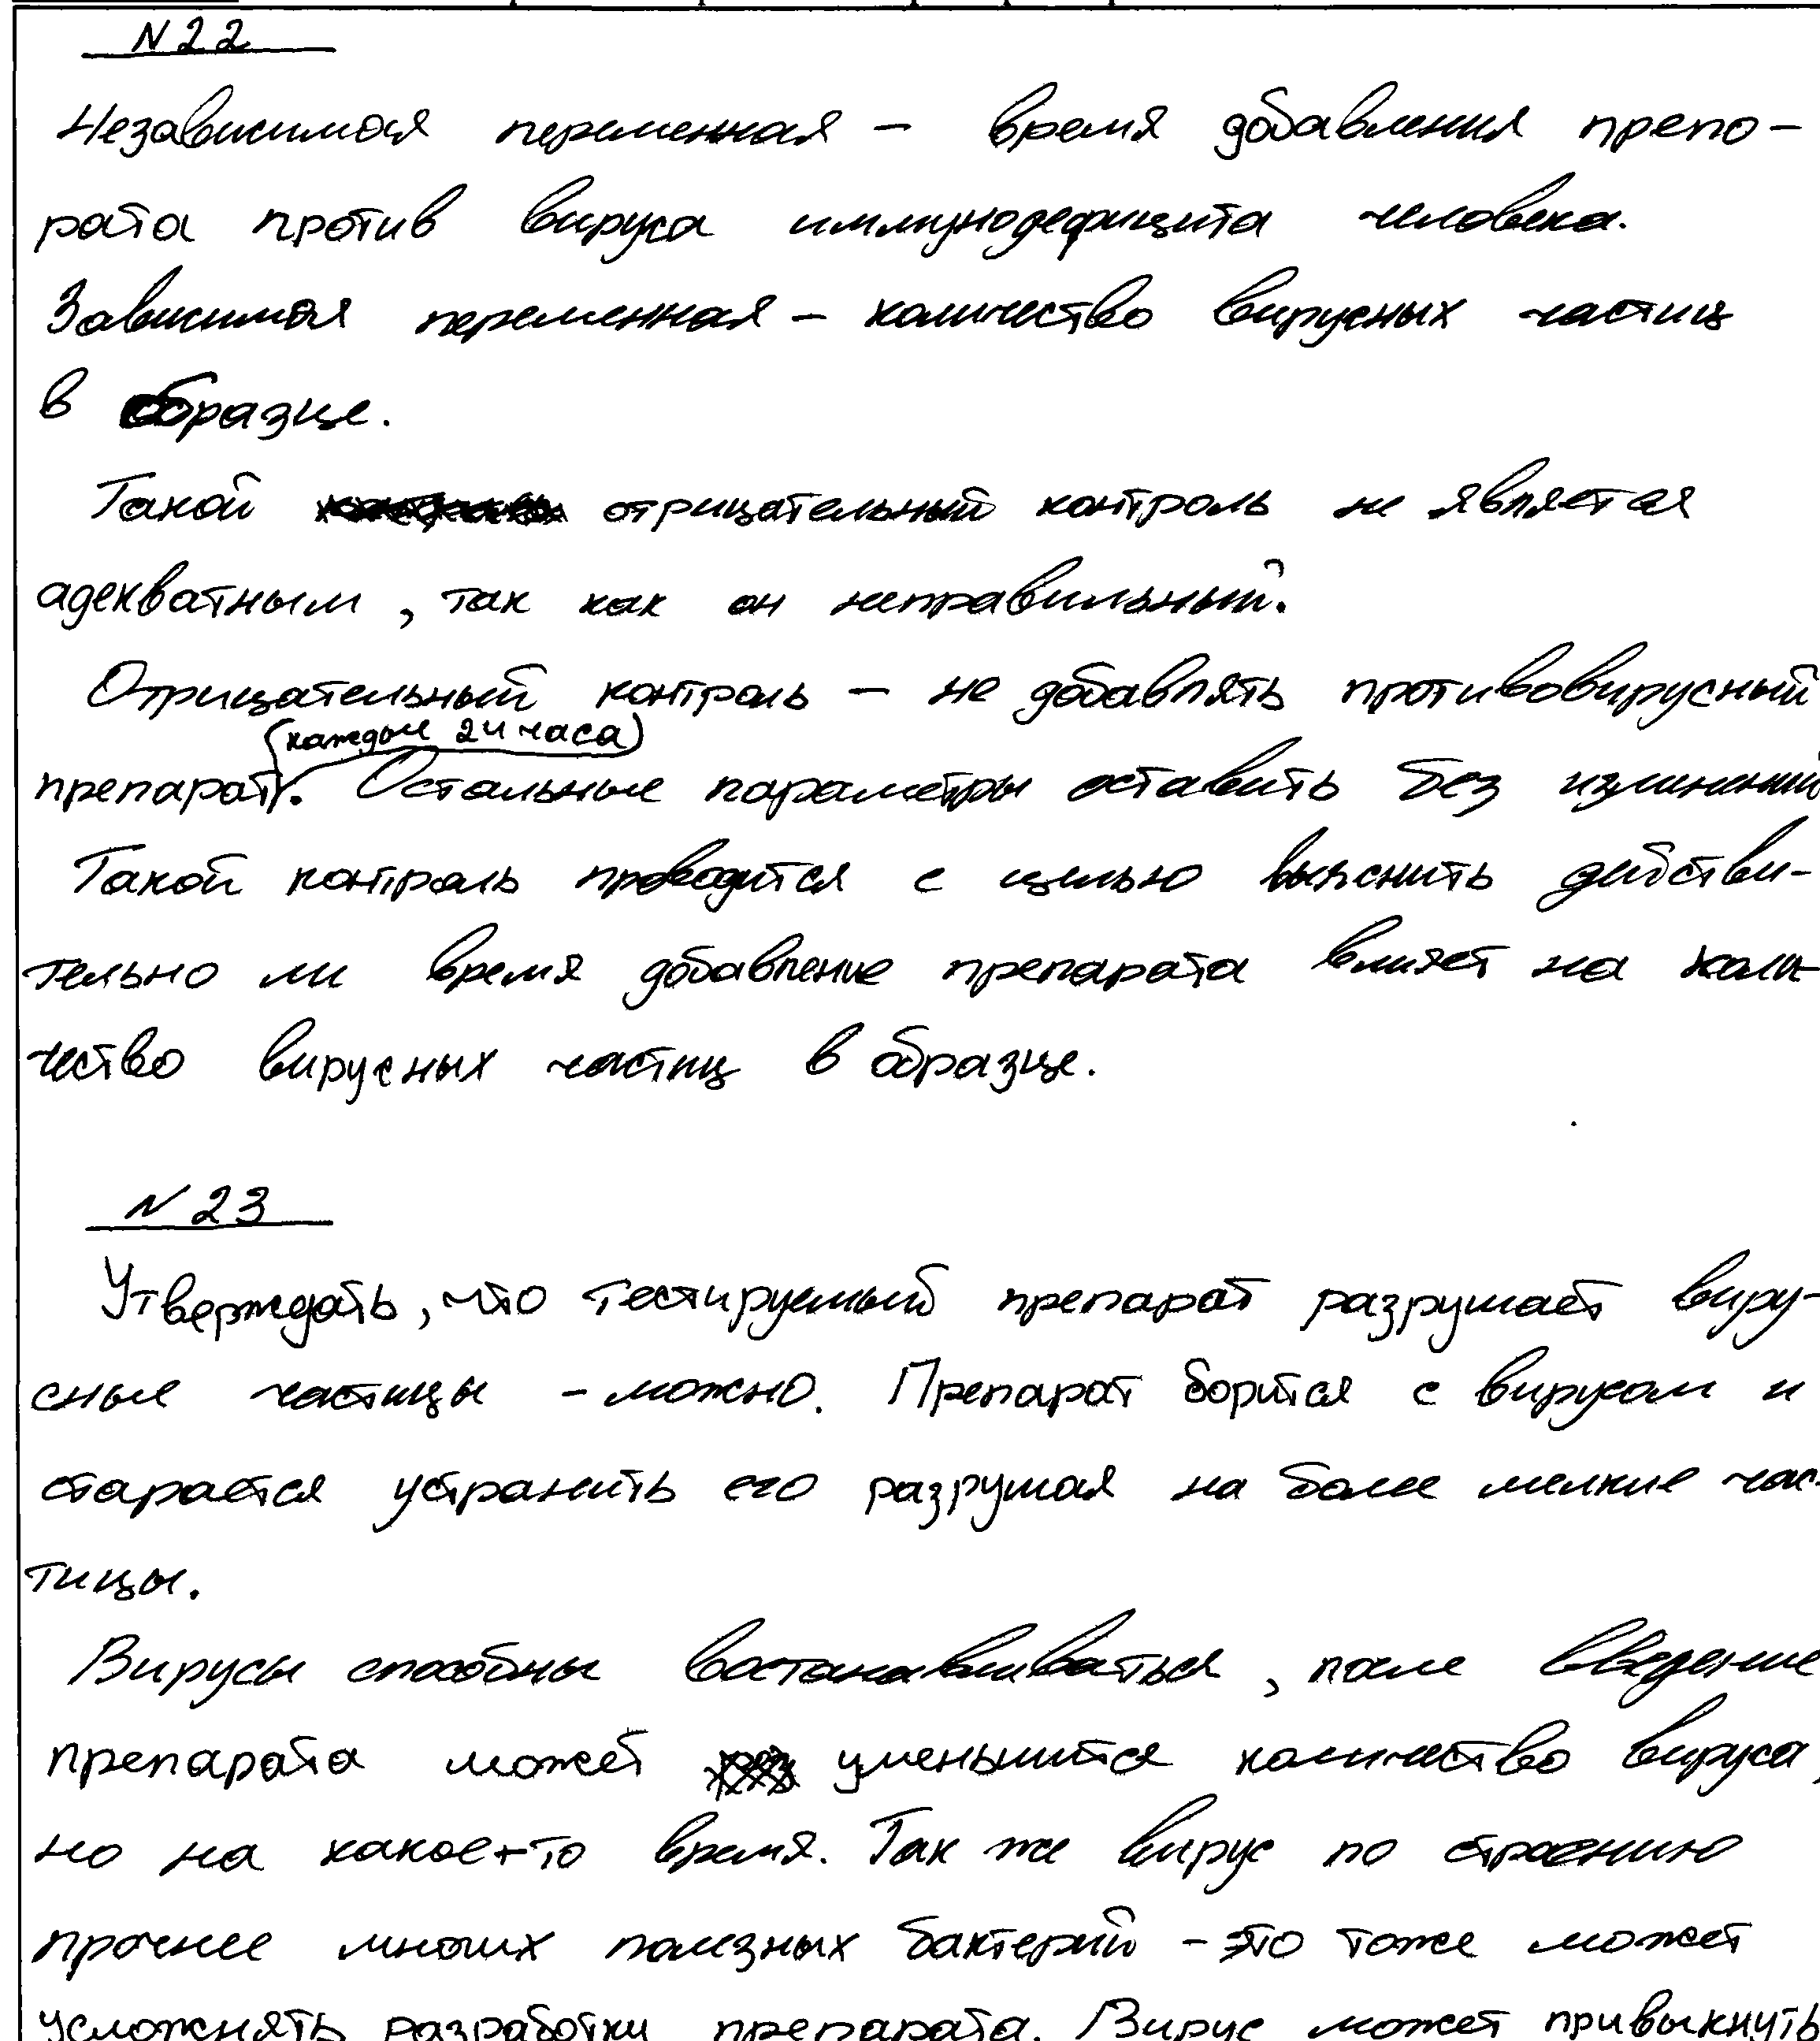 N22
Независимая переменная – время добавления препо-
рата против вируса иммунодефицита человека.
Зависимая переменная – количество вирусных частиц
в образце.
Такой отрицательный контроль не является
адекватным, так как он неправильный.
Отрицательный контроль – не добавлять противовирусный
(каждые 24 часа)
препарат. Остальные параметры оставить без изменений
Такой контроль проводится с целью выяснить действи-
тельно ли время добавление препарата влияет на коли-
чество вирусных частиц в образце.
N23
Утверждать, что тестируемый препарат разрушает виру-
сные частицы – можно. Препарат борится с вирусом и
старается устранить его разрушая на более мелкие час-
тицы.
Вирусы способны востанавливаться, после введение
препарата может уменьшится количество вируса,
но на какое-то время. Так же вирус по строению
прочнее многих полезных бактерий – это тоже может
усложнять разработку препарата. Вирус может привыкнуть